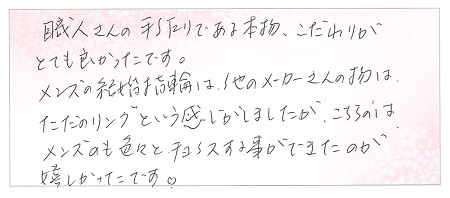 職人さんの手作りである本物、こだわりが
とても良かったです。
メンズの結婚指輪は、他のメーカーさんの物は、
ただのリングという感じがしましたが、こちらのは
メンズのも色々とチョイスする事ができたのが
嬉しかったです♡